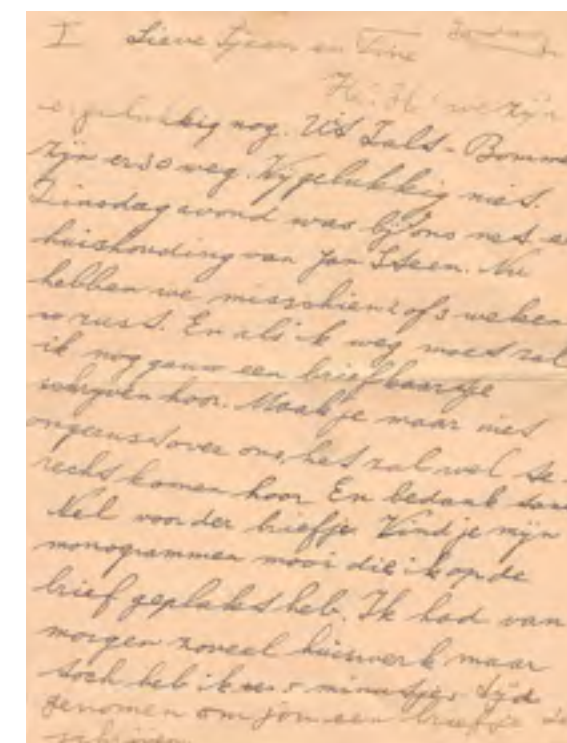 I Lieve Sjeen en Tine Zondag
Hè! Hè! we zijn
er gelukkig nog. Uit Zalt-Bomme
zijn er 30 weg. Wij gelukkig niet.
Dinsdagavond was bij ons net e
huishouding van Jan Steen. Nu
hebben we misschien 2 of 3 weken
rust. En als ik weg moet zal
ik nog gauw een briefkaartje
schrijven hoor. Maak je maar niet
ongerust over ons, het zal wel te
recht komen hoor. En bedank
Nel voor der briefje. Vind je mijn
monogrammen mooi die ik op de
brief geplakt heb. Ik had van
morgen zoveel huiswerk maar
toch heb ik 5 minuutjes tijd
genomen om jou een briefje te
schrijven